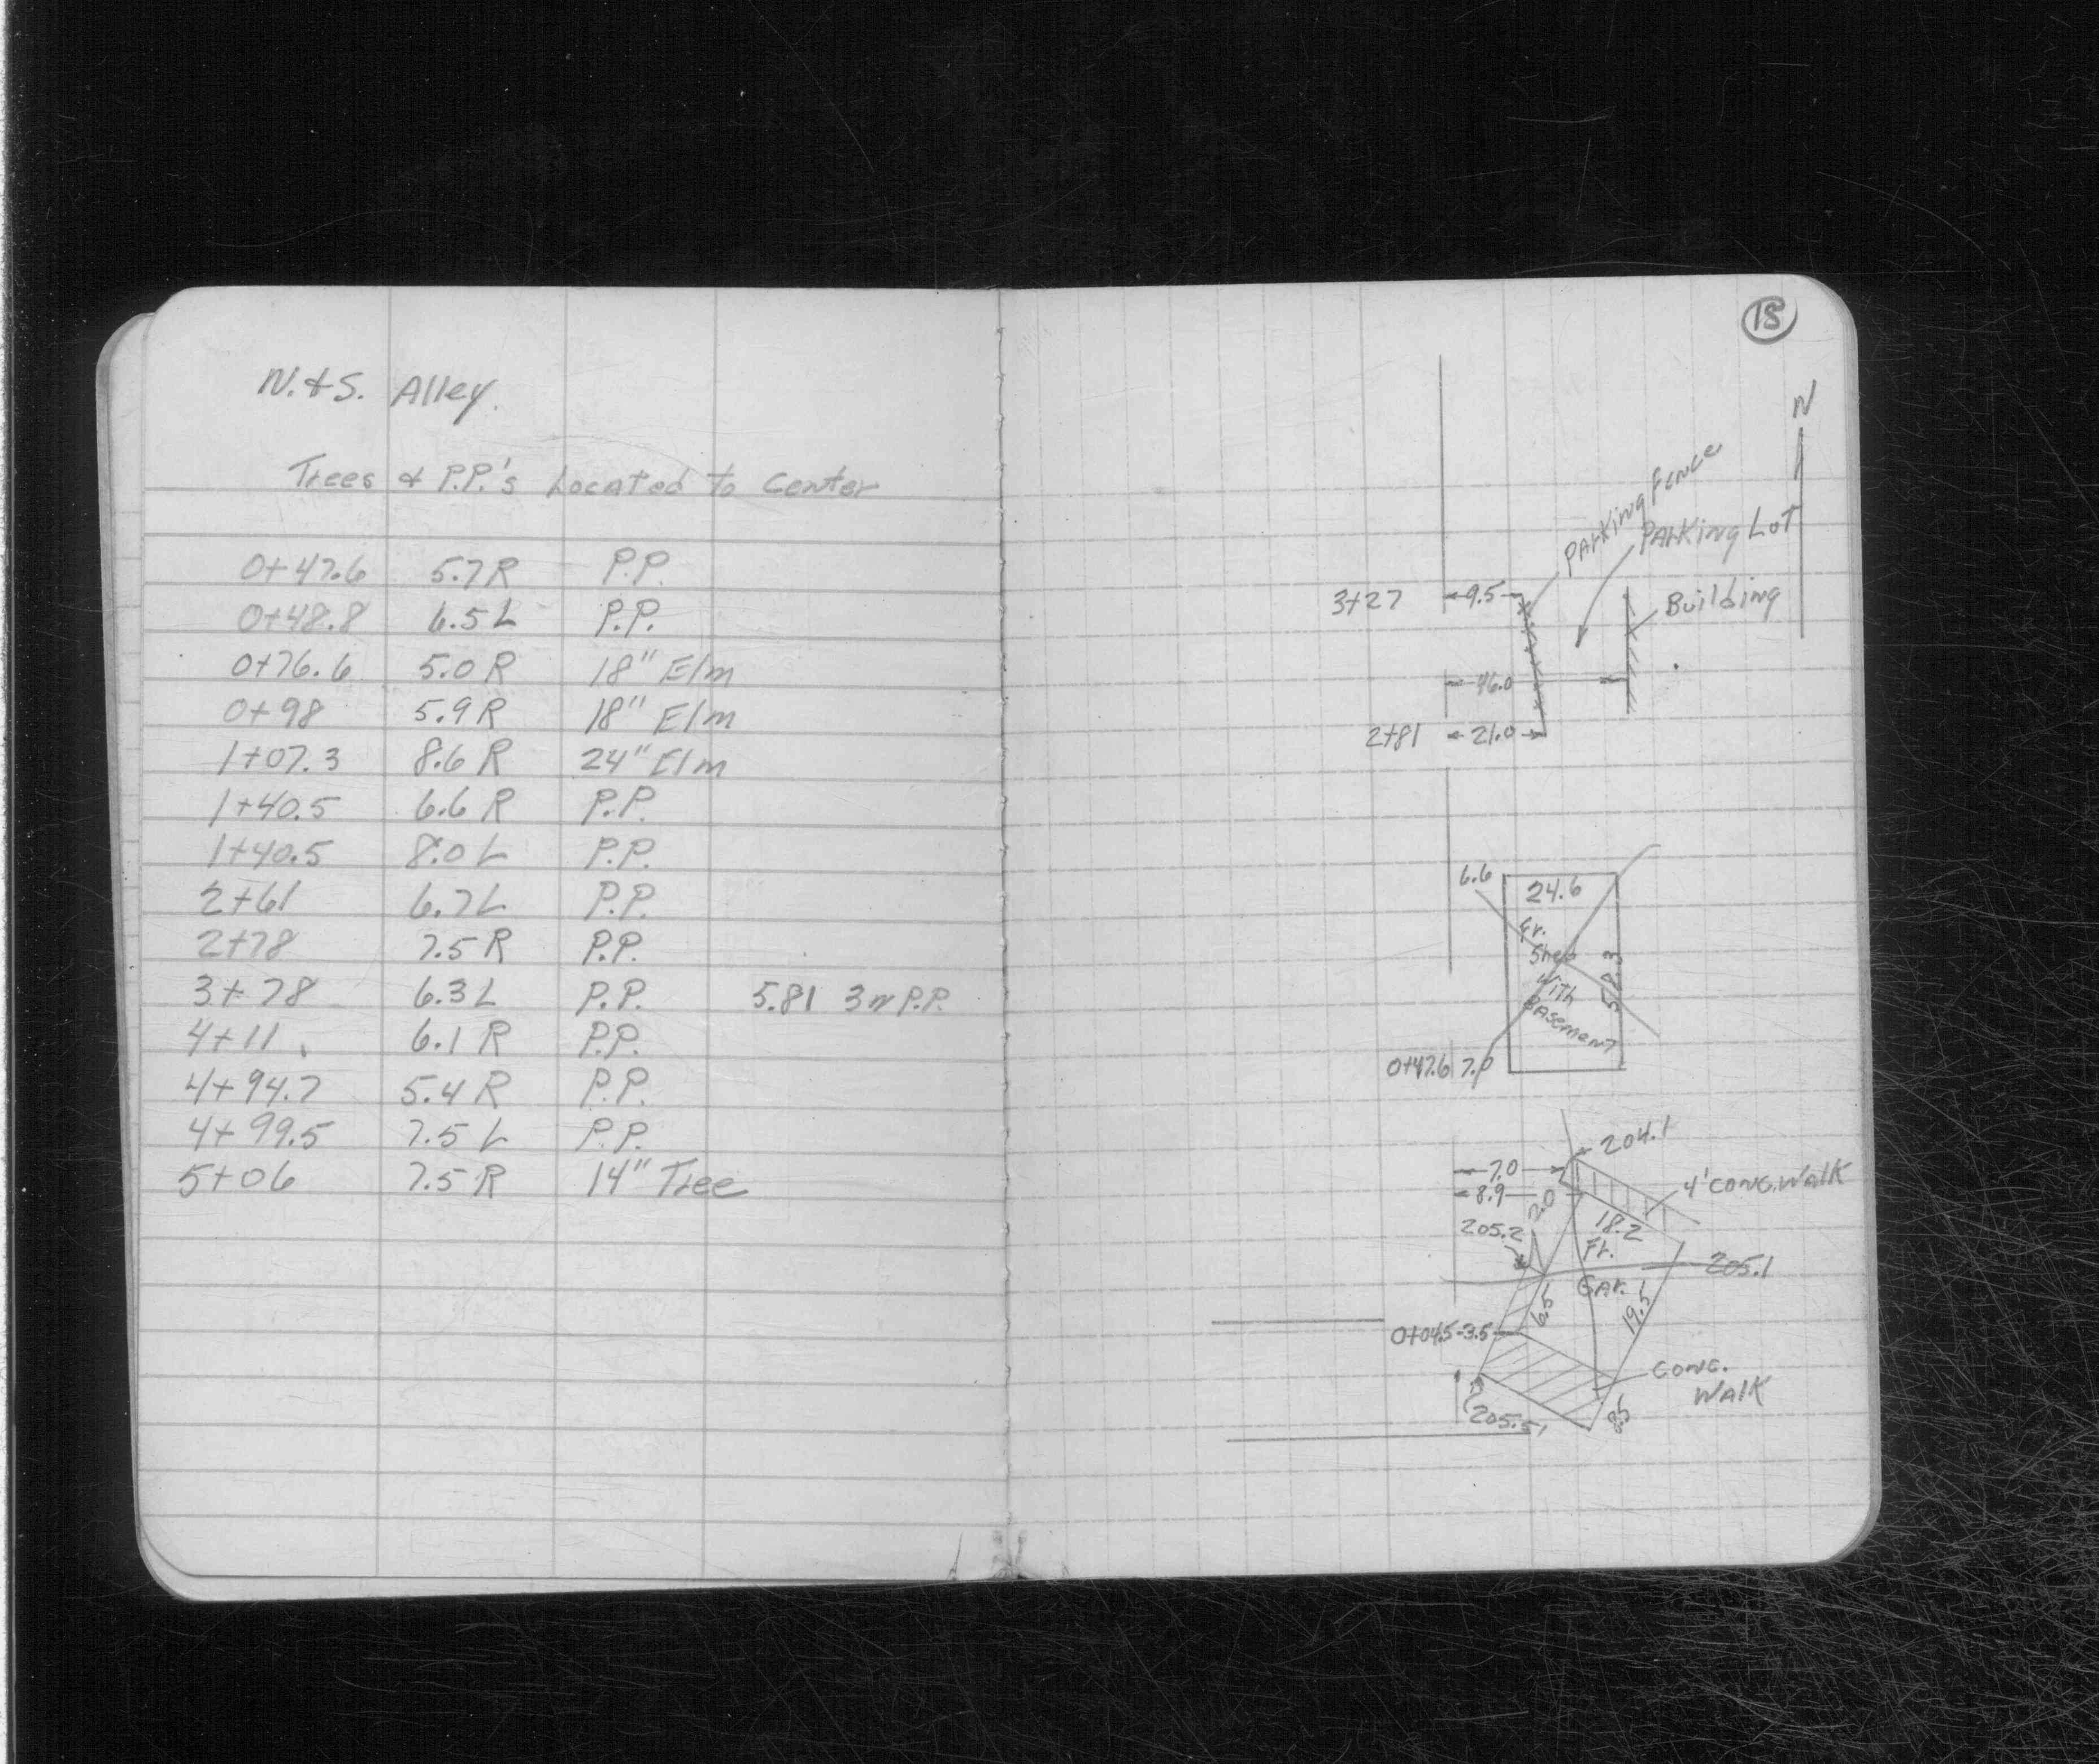 N. & S. Alley.
Trees & P.P.'s Located to Center
0+47.6 5.7 R P.P.
0+48.8 6.5 L P.P.
0+76.6 5.0 R 18" Elm
0+98 5.9 R 18" Elm
1+07.3 8.6 R 24" Elm
1+40.5 6.6 R P.P.
1+40.5 8.0 L P.P.
2+61 6.7 L P.P.
2+78 7.5 R P.P.
3+78 6.3 L P.P. 5.81 P.P.
4+11 6.1 R P.P.
4+94.7 5.4 R P.P.
4+99.5 7.5 L P.P.
5+06 7.5 R 14" Tree
18
N
Parking Fence
Parking Lot
3+27 9.5
Building
46.0
2+81 21.0
6.6 24.6
Shed
With
Basement
52.3
0+47.6 7.0
204.1
7.0
8.9
2.0
4' Conc. Walk
205.2
18.2
Fr.
Gar.
205.1
6.5
19.5
0+04.5 - 3.5
Conc.
Walk
205.5